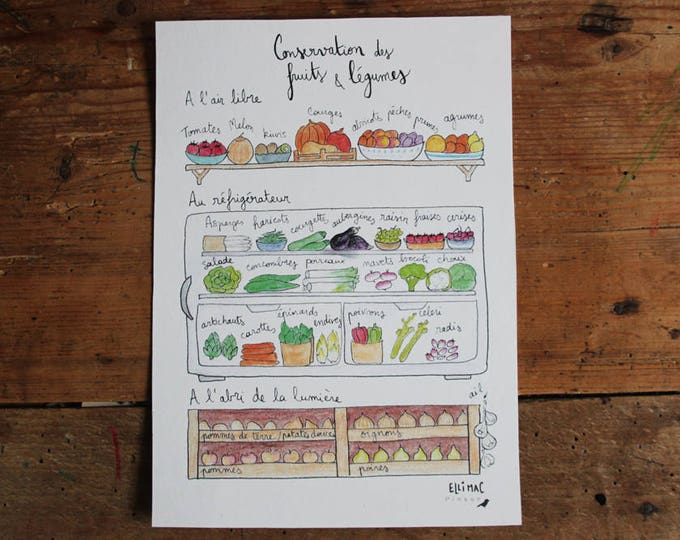 Conservation des
fruits & légumes
A l'air libre
Tomates Melon kiwis Courges abricots pêches prunes agrumes
Au réfrigérateur
Asperges haricots courgettes aubergines raisin fraises cerises
salade concombres poireaux navets brocoli choux
artichauts carottes épinards endives poivrons céleri radis
A l'abri de la lumière
ail
pommes de terre/patates douces oignons
pommes poires
ELLiMAC